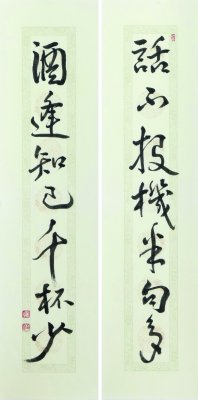 話不投機半句多
酒逢知己千杯少